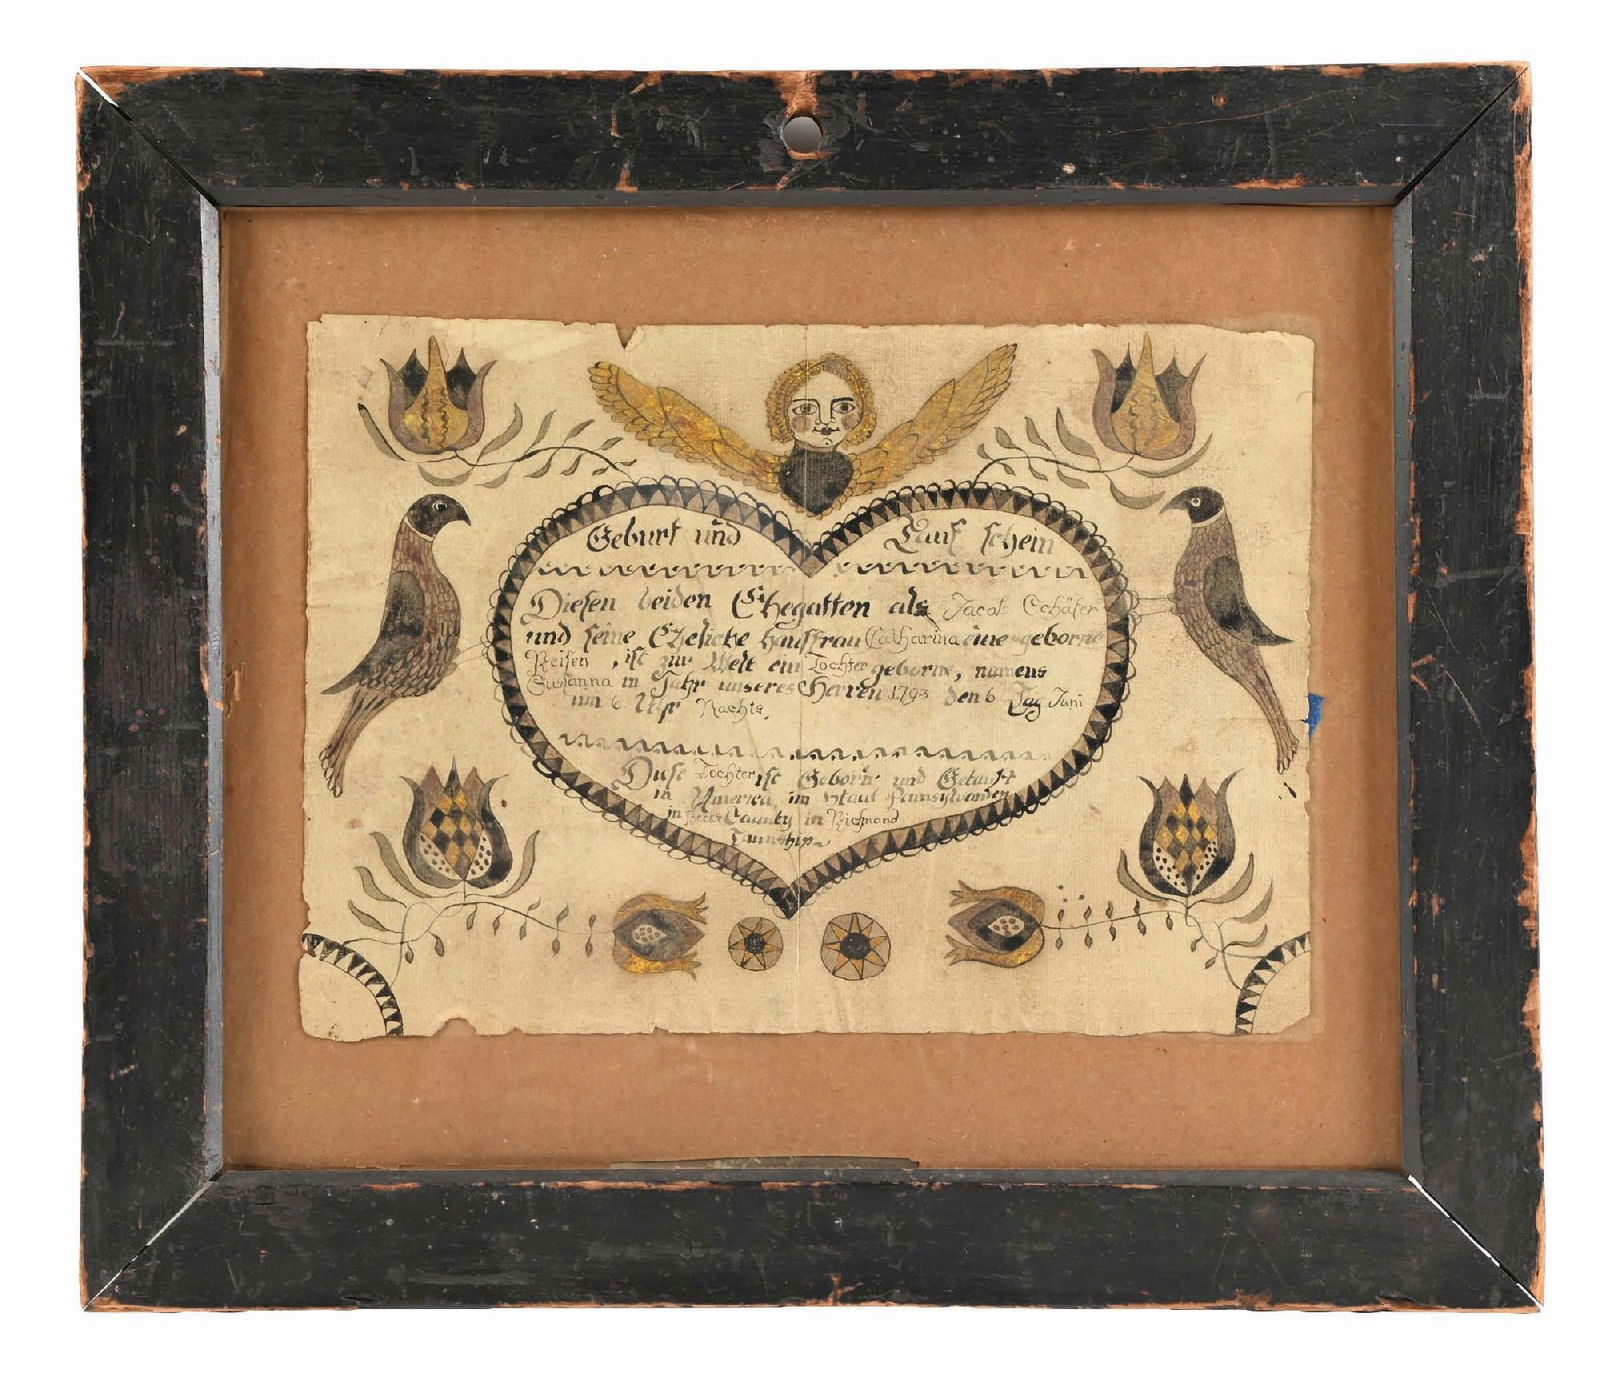 Geburt und Tauf schein
Diesen beiden Ehegatten als Jacob Schäfer
und seine Eheliche Hausfrau Catharina eine geborne
Reisen, ist zur Welt ein Tochter geborne, namens
Susanna in Jahr unseres Herren 1793 den 6 Tag Juni
um 6 Uhr Nachts.
Diese Tochter ist Geborn und Getauft
in America im Staat Pennsylvanien
in County in Richmond
Taunship